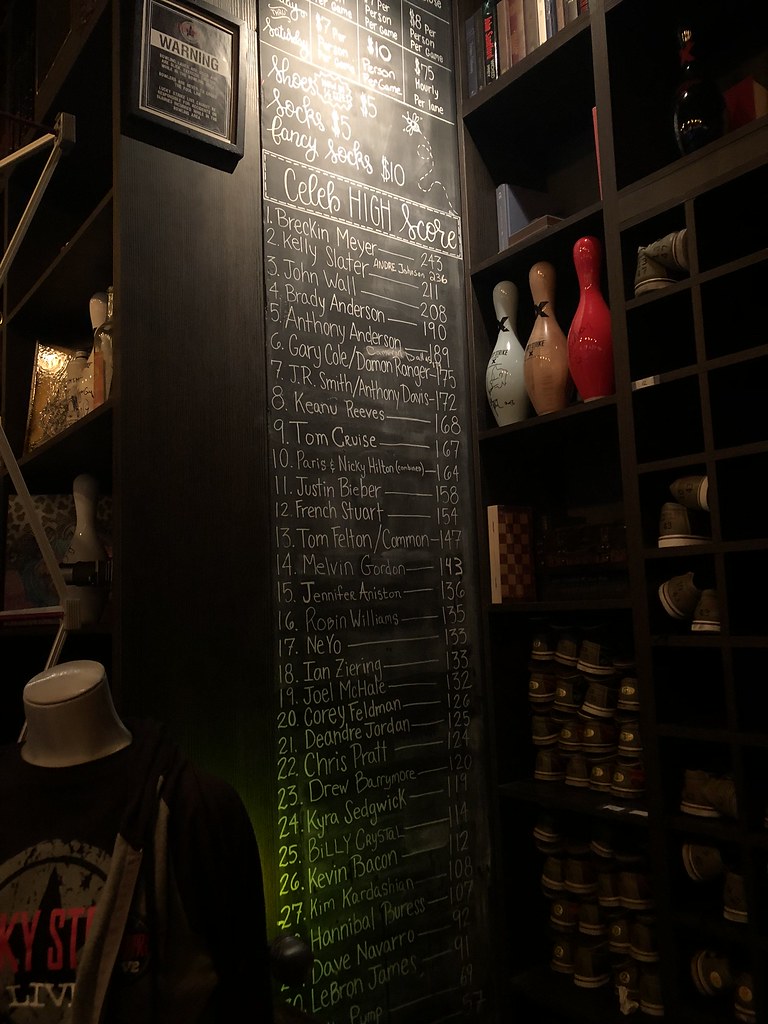 WARNING
Per Game
Per Person Per Game
$8 Per Person Per Game
Saturday
$7 Per Person Per Game
$10 Person Per Game
$75 Hourly Per lane
Shoes $5
Socks $5
fancy socks $10
Celeb HIGH Score
1. Breckin Meyer 243
2. Kelly Slater ANDRE Johnson 236
3. John Wall 211
4. Brady Anderson 208
5. Anthony Anderson 190
189
6. Gary Cole/Damon Ranger 175
7. J.R. Smith/Anthony Davis 172
8. Keanu Reeves 168
9. Tom Cruise 167
10. Paris & Nicky Hilton (combined) 164
11. Justin Bieber 158
12. French Stuart 154
13. Tom Felton/Common 147
14. Melvin Gordon 143
15. Jennifer Aniston 136
16. Robin Williams 135
17. NeYo 133
18. Ian Ziering 133
19. Joel McHale 132
20. Corey Feldman 126
21. Deandre Jordan 125
22. Chris Pratt 124
23. Drew Barrymore 120
24. Kyra Sedgwick 119
25. BILLY CRYSTAL 114
26. Kevin Bacon 112
27. Kim Kardashian 108
Hannibal Buress 107
Dave Navarro 92
LeBron James 91
Pump 69
57
KY ST
LIV